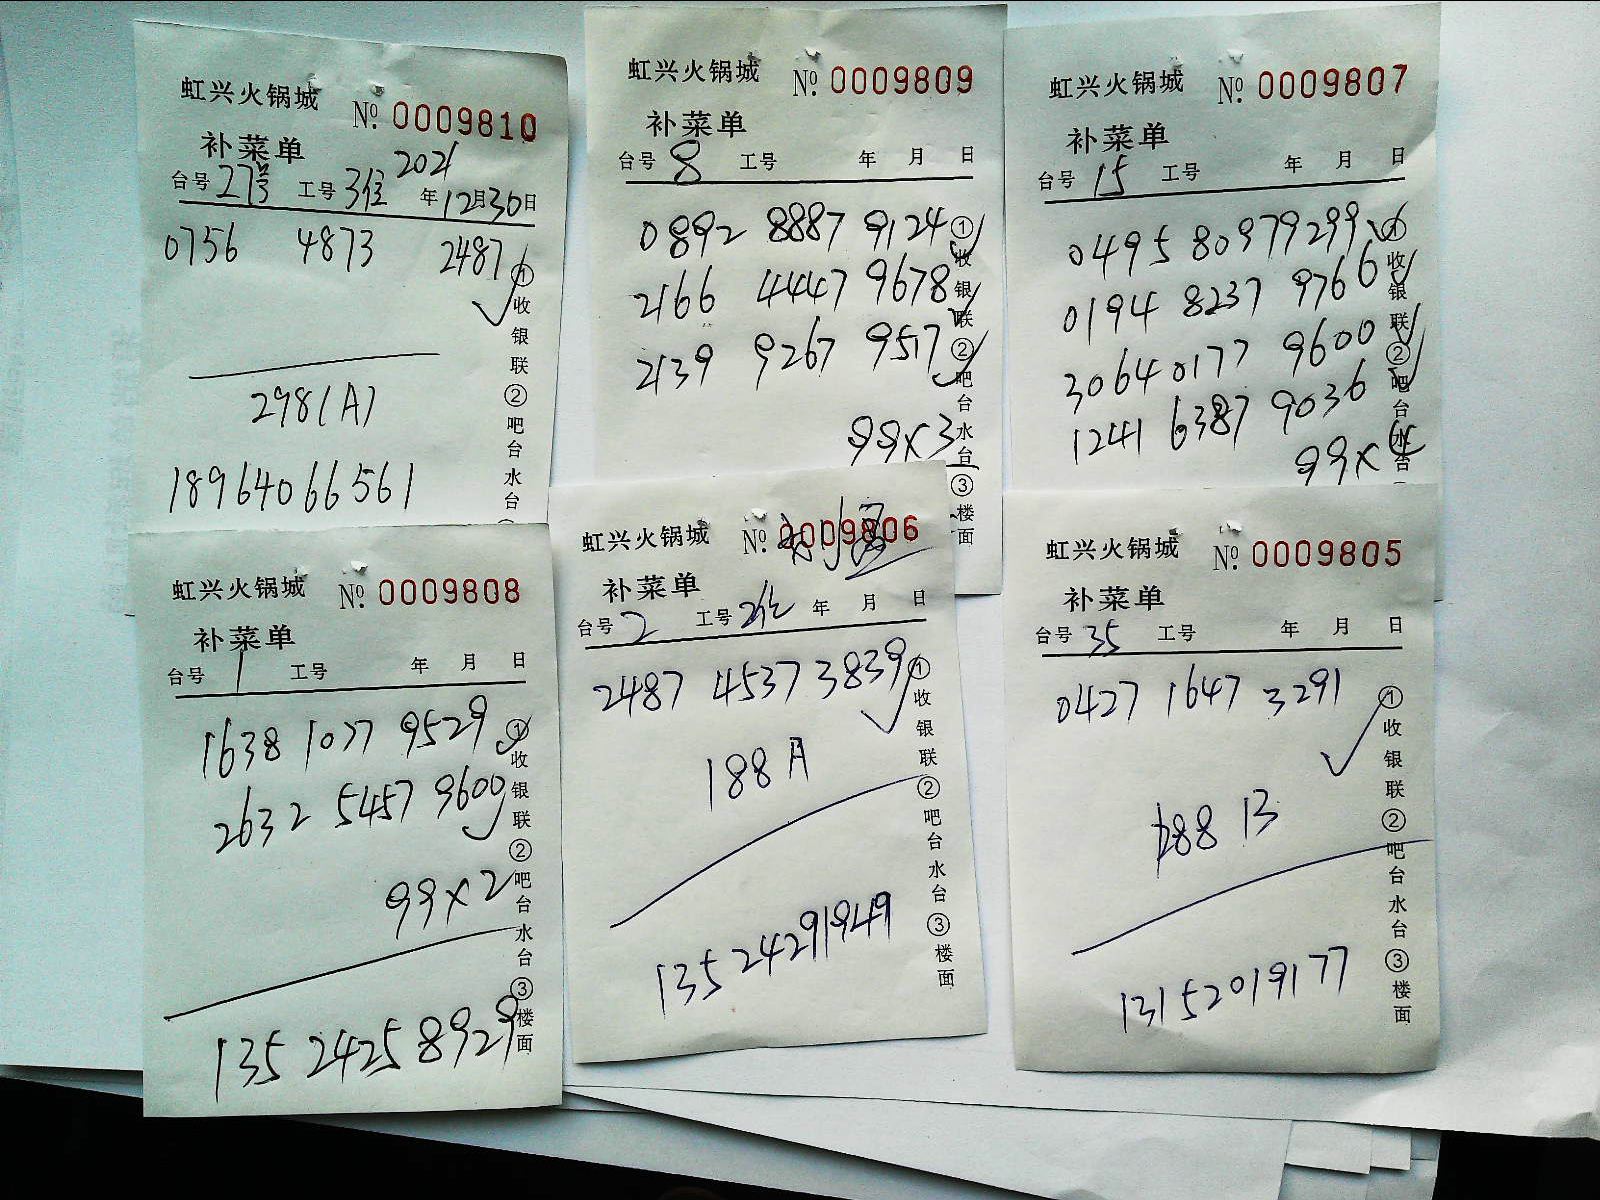 虹兴火锅城 No. 0009810
补菜单
2021
台号 27号 工号 3位 年12月30日
0756 4873 2487
298(A)
18964066561
①收银联②吧台水台
虹兴火锅城 No. 0009809
补菜单
台号 8 工号 年 月 日
0892 8887 9124
2166 4447 9678
2139 9267 9517
99×3
①收银联②吧台水台③楼面
虹兴火锅城 No. 0009807
补菜单
台号 15 工号 年 月 日
0495 8097 9299
0194 8237 9766
3064 0177 9600
1241 6387 9036
99×4
①收银联②吧台水台
虹兴火锅城 No. 0009808
补菜单
台号 1 工号 年 月 日
1638 1077 9529
2632 5457 9600
99×2
13524258929
①收银联②吧台水台③楼面
虹兴火锅城 No. 0009806
补菜单
台号 2 工号 2位 年 月 日
2487 4537 3839
188A
13524291949
①收银联②吧台水台③楼面
虹兴火锅城 No. 0009805
补菜单
台号 35 工号 年 月 日
0427 1647 3291
188 B
13152019177
①收银联②吧台水台③楼面